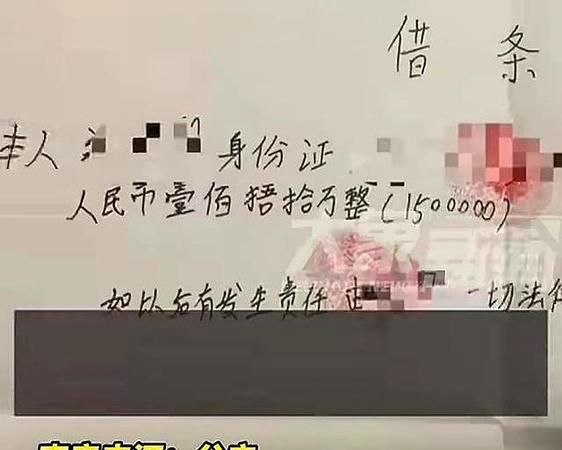 借 条
本人 身份证
人民币壹佰捂拾万整(1500000)
大象新闻
如以后有发生责任由 一切法